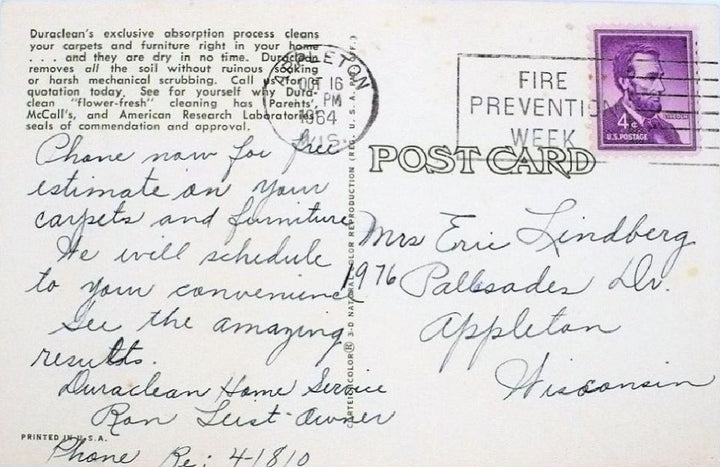 Duraclean's exclusive absorption process cleans
your carpets and furniture right in your home
. . . and they are dry in no time. Duraclean
removes all the soil without ruinous soaking
or harsh mechanical scrubbing. Call us for a
quotation today. See for yourself why Dura-
clean "flower-fresh" cleaning has Parents',
McCall's, and American Research Laboratories
seals of commendation and approval.
Phone now for free
estimate on your
carpets and furniture
We will schedule
to your convenience
See the amazing
results.
Duraclean Home Service
Ron Leist-Owner
Phone Re: 4-1810
PRINTED IN U.S.A.
3-D NATURAL COLOR REPRODUCTION (REG. U.S.A.
APPLETON
OCT 16
PM
1964
WIS.
FIRE
PREVENTION
WEEK
4¢
LINCOLN
U.S. POSTAGE
POST CARD
Mrs Eric Lindberg
1976 Palisades Dr.
Appleton
Wisconsin